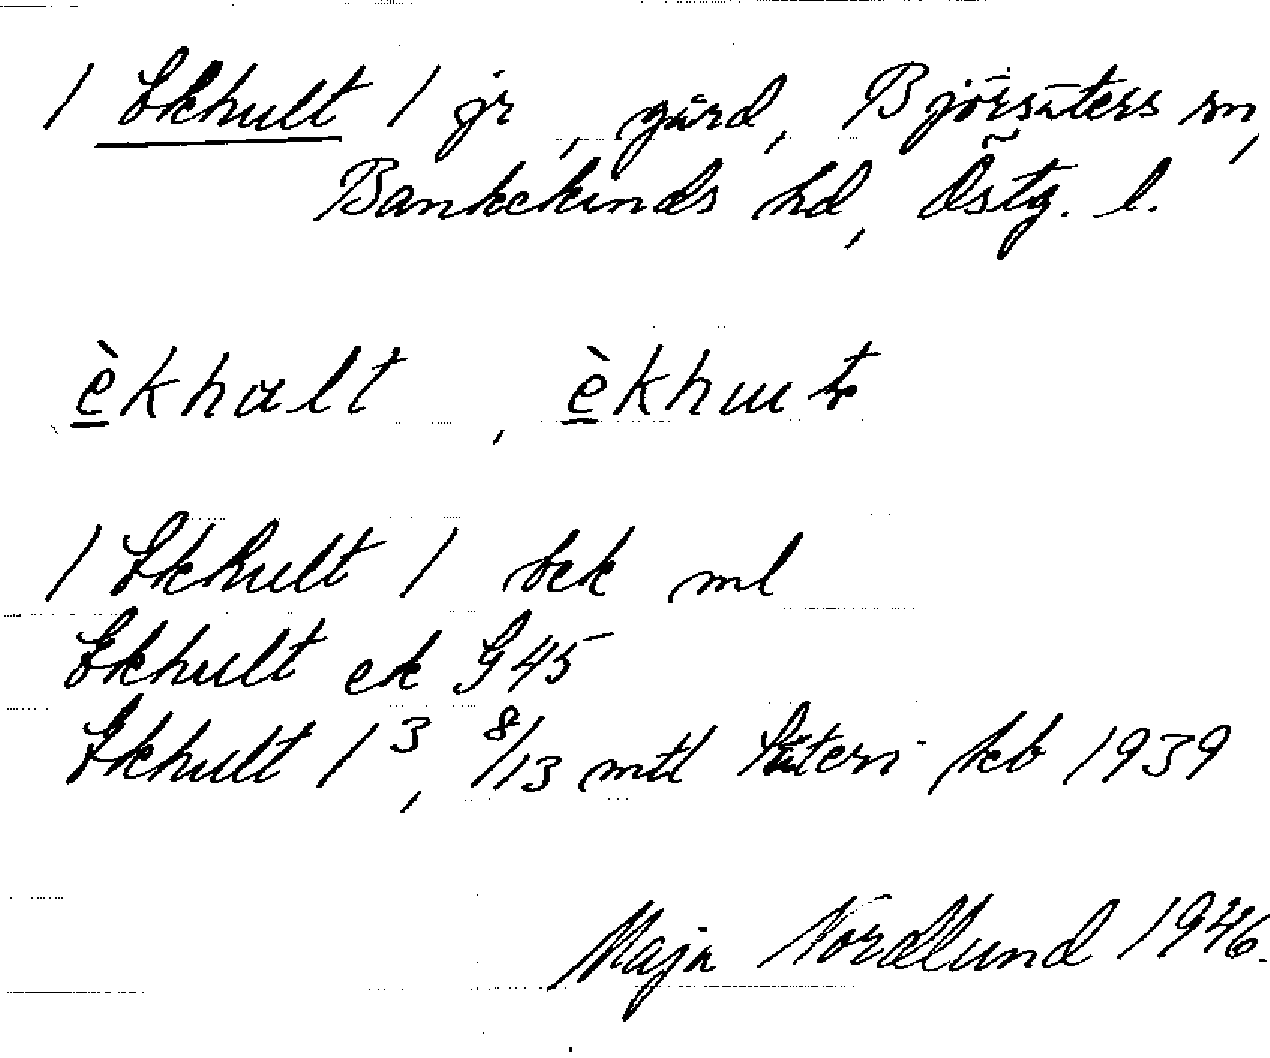 / Ekhult / jr, gård, Björsäters sn,
Bankekinds hd, Östg. l.
èkhαlt, èkhut
/ Ekhult / bek ml
Ekhult ek G 45
Ekhult 1 3, 8/13 mtl Säteri jeb 1939
Maja Nordlund 1946.